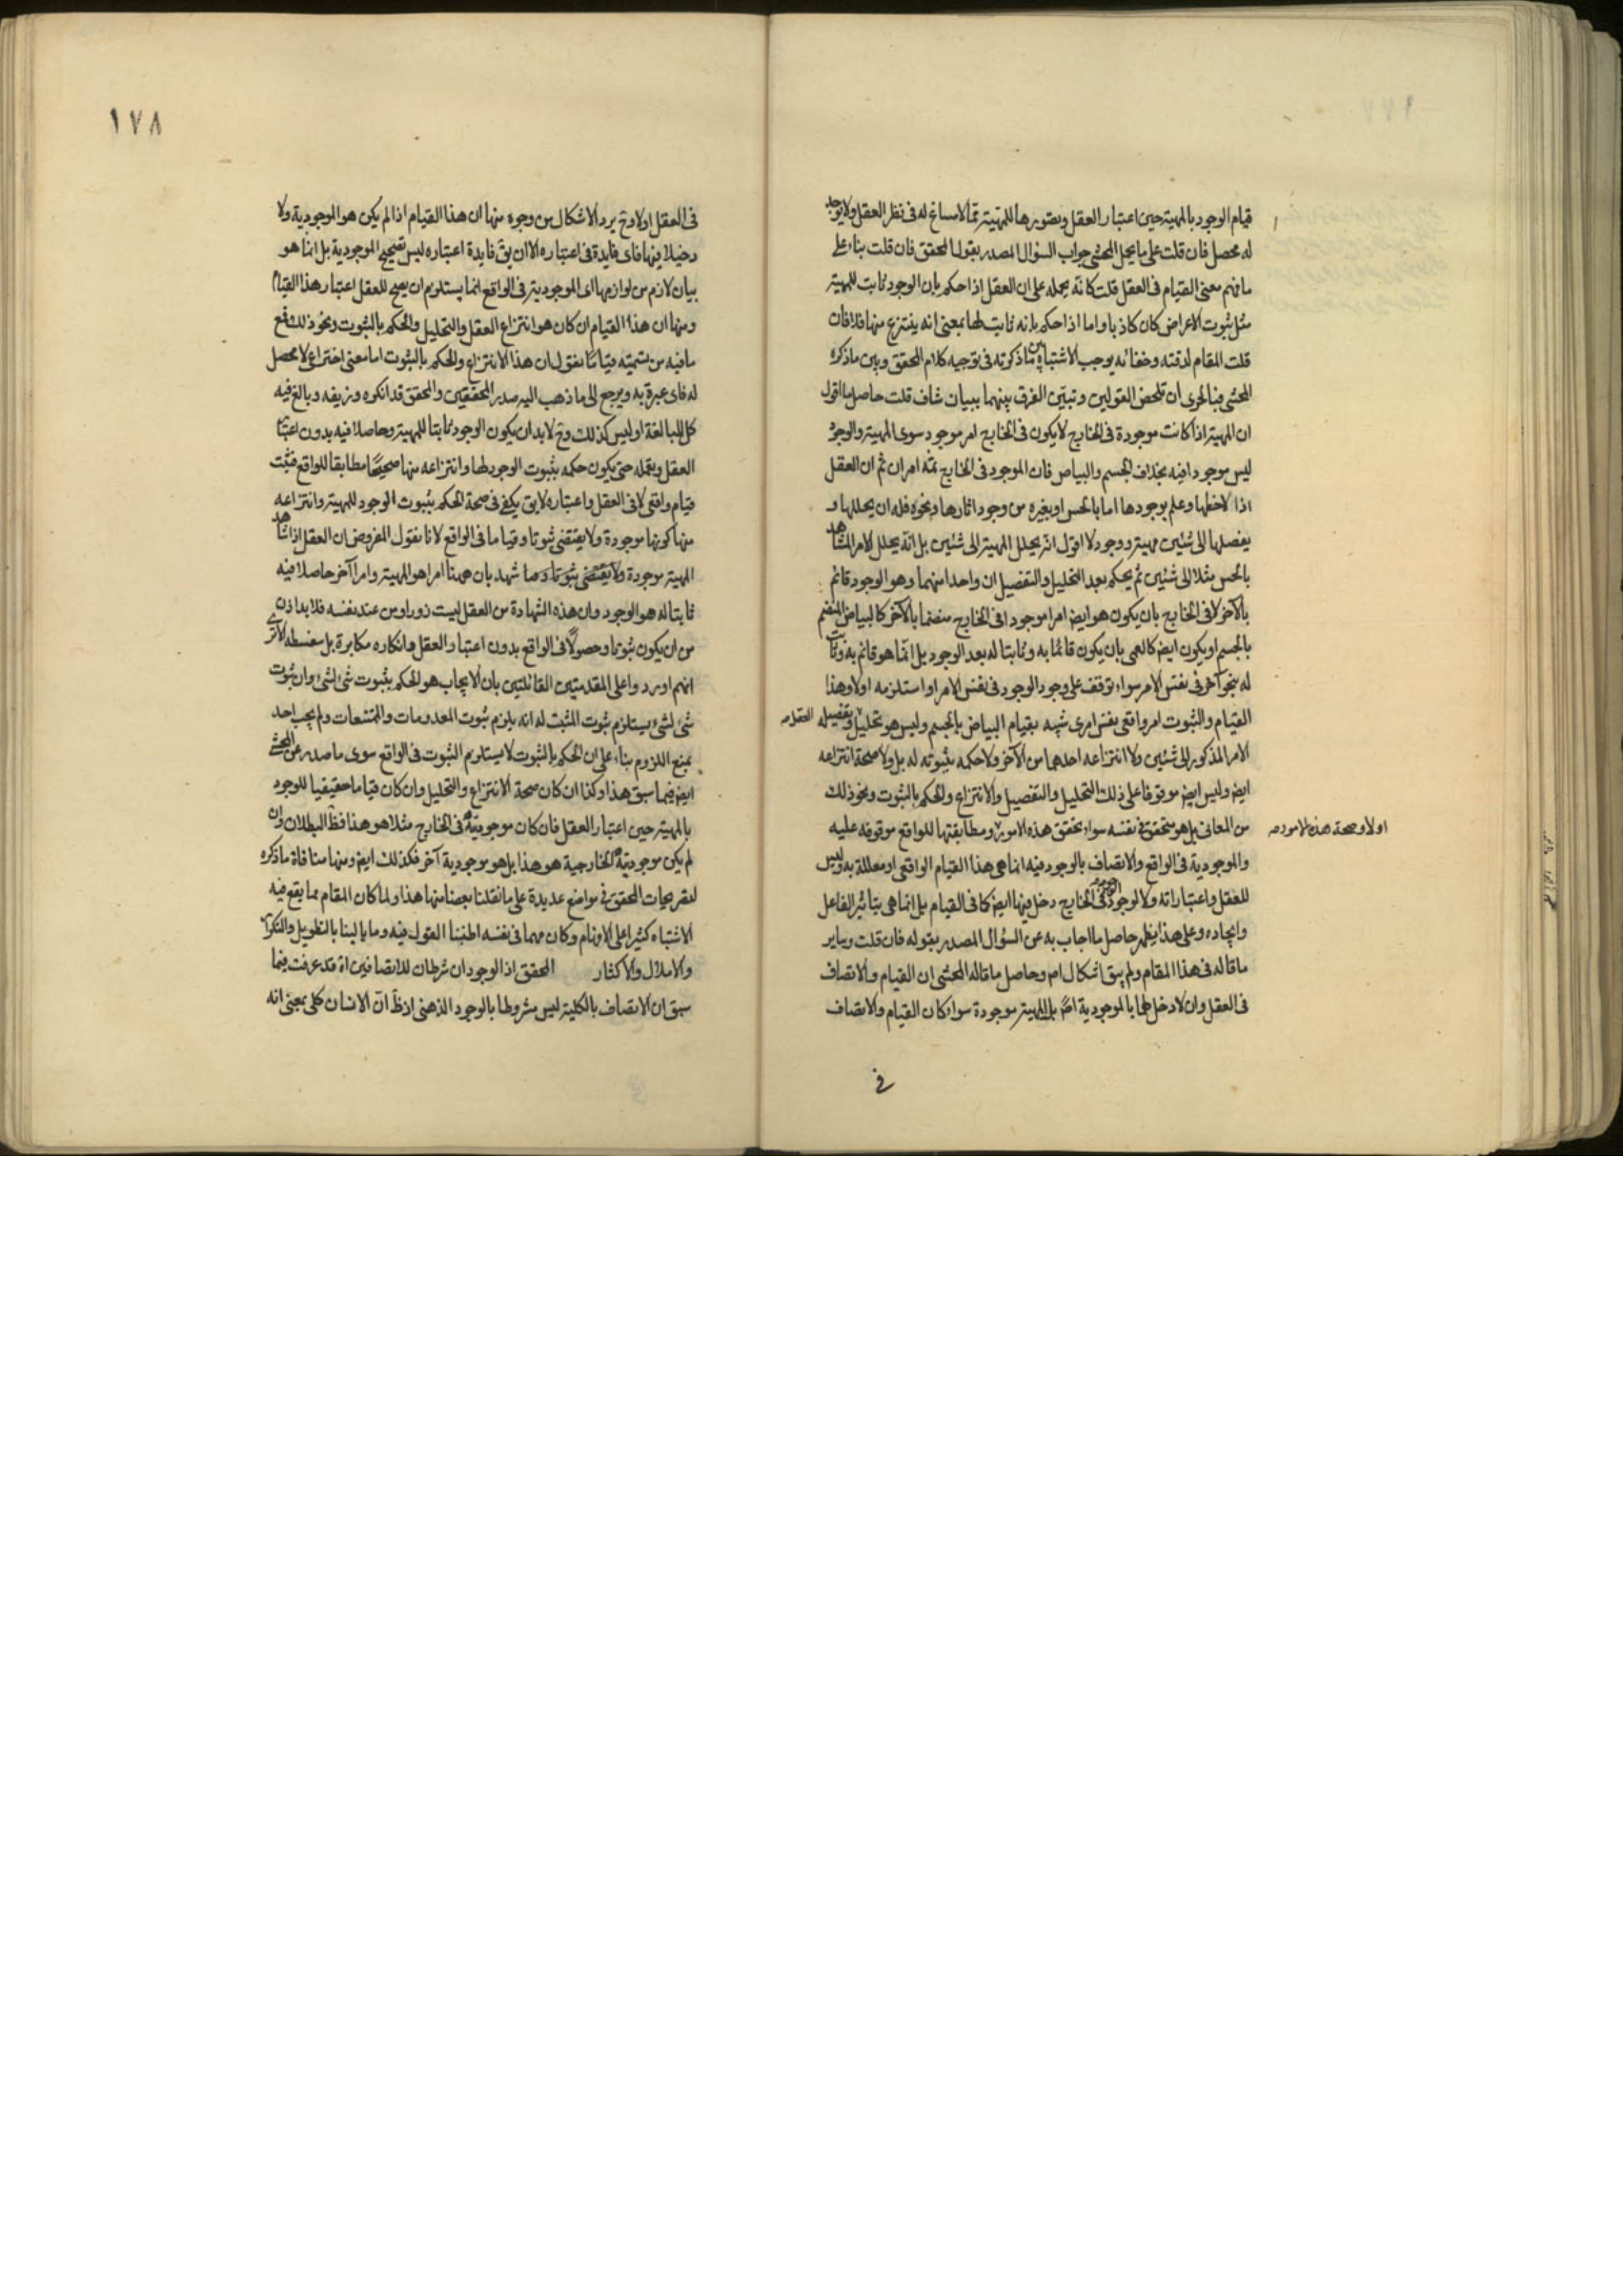 قيام الوجود بالمهية حين اعتبار العقل وتصورها للمهية مما لامساغ له فى نظر العقل ولا يوجد
له محصل فان قلت على ما يحمل المحشى جواب السؤال المصدر بقول المحقق فان قلت بناء على
ما فهم معنى القيام فى العقل قلت كانه يحمله على ان العقل اذا حكم بان الوجود ثابت للمهية
مثل ثبوت الاعراض كان كاذبا واما اذا حكم بانه ثابت لها بمعنى انه ينتزع منها فلا فان
قلت المقام لدقته وخفائه يوجب الاشتباه بين ما ذكرته فى توجيه كلام المحقق وبين ما ذكره
المحشى فبالحرى ان تلخص القولين وتبين الفرق بينهما ببيان شاف قلت حاصل ما اقول
ان المهية اذا كانت موجودة فى الخارج لا يكون فى الخارج امر موجود سوى المهية والوجود
ليس موجودا فيه بخلاف الجسم والبياض فان الموجود فى الخارج ثمه امران ثم ان العقل
اذا لاحظها وعلم بوجودها اما بالحس او بغيره من وجود اثارها ونحوه فله ان يحللها و
يفصلها الى شئين مهية ووجود لا اقول انه يحلل المهية الى شئين بل انه يحلل الامر المشاهد
بالحس مثلا الى شئين ثم يحكم بعد التحليل والتفصيل ان واحدا منهما وهو الوجود قائم
بالآخر لا فى الخارج بان يكون هو ايض امرا موجودا فى الخارج منضما بالآخر كالبياض المنضم
بالجسم او يكون ايض كالعمى بان يكون قائما به وثابتا له بعد الوجود بل انما هو قائم به وثابت
له بنحو آخر فى نفس الامر سواء توقف على وجود الوجود فى نفس الامر او استلزمه اولا وهذا
القيام والثبوت امر واقعى نفس امرى شبيه بقيام البياض بالجسم وليس هو تحليل وتفصيله
العقل
الامر المذكور الى شئين ولا انتزاعه احدهما من الآخر ولا حكمه بثبوته له بل ولا صحة انتزاعه
ايض وليس ايض موقوفا على ذلك التحليل والتفصيل والانتزاع والحكم بالثبوت ونحو ذلك
من المعانى بل هو متحقق فى نفسه سواء تحقق هذه الامور ومطابقتها للواقع موقوفه عليه
اولا وصحة هذه الامور
والموجودية فى الواقع والاتصاف بالوجود فيه انما هى هذا القيام الواقعى او معللة به وليس
للعقل واعتباراته ولا لوجود الوجود فى الخارج دخل فيها ايض كما فى القيام بل انما هى بتاثير الفاعل
وايجاده وعلى هذا يظهر حاصل ما اجاب به عن السؤال المصدر بقوله فان قلت وساير
ما قاله فى هذا المقام ولم يبق اشكال اصم وحاصل ما قاله المحشى ان القيام والاتصاف
فى العقل وان لا دخل لهما بالموجودية اصم بل المهية موجودة سواء كان القيام والاتصاف
فى
١٧٨
فى العقل اولا وح يرد الاشكال من وجوه منها ان هذا القيام اذا لم يكن هو الموجودية ولا
دخيلا فيها فاى فايدة فى اعتباره الا ان يق فايدة اعتباره ليس تصحيح الموجودية بل انما هو
بيان لازم من لوازمها اى الموجودية فى الواقع انما يستلزم ان يصح للعقل اعتبار هذا القيام
ومنها ان هذا القيام ان كان هو انتزاع العقل والتحليل والحكم بالثبوت ونحو ذلك فمع
ما فيه من تسميته قياما نقول ان هذا الانتزاع والحكم بالثبوت اما معنى اختراعى لا محصل
له فاى عبرة به ويرجع الى ما ذهب اليه صدر المحققين والمحقق قد انكره وزيفه وبالغ فيه
كل المبالغة او ليس كذلك وح لا بد ان يكون الوجود ثابتا للمهية وحاصلا فيه بدون اعتبار
العقل وتعمله حتى يكون حكمه بثبوت الوجود لها وانتزاعه منها صحيحا مطابقا للواقع فثبت
قيام واقعى لا فى العقل واعتباره لا يق يكفى فى صحة الحكم بثبوت الوجود للمهية وانتزاعه
منها كونها موجودة ولا يقتضى ثبوتا وقياما فى الواقع لانا نقول المفروض ان العقل اذا شاهد
المهية موجودة شهد بان ههنا امرا هو المهية وامرا آخر حاصلا فيه
ثابتا له هو الوجود وان هذه الشهادة من العقل ليست زورا ومن عند نفسه فلا بد اذن
من ان يكون ثبوتا وحصولا فى الواقع بدون اعتبار العقل وانكاره مكابرة بل سفسطه الا ترى
انهم اوردوا على المقدمتين القائلتين بان الايجاب هو الحكم بثبوت شئ لشئ وان ثبوت
شئ لشئ يستلزم ثبوت المثبت له انه يلزم ثبوت المعدومات والممتنعات ولم يجب احد
بمنع اللزوم بناء على ان الحكم بالثبوت لا يستلزم الثبوت فى الواقع سوى ما صدر عن المحشى
ايض فيما سبق هذا وكذا ان كان صحة الانتزاع والتحليل وان كان قياما حقيقيا للوجود
بالمهية حين اعتبار العقل فان كان موجودية فى الخارج مثلا هو هذا فظ البطلان وان
لم يكن موجوديته الخارجية هو هذا بل هو موجودية آخر فكذلك ايض ومنها منافاة ما ذكره
لتصريحات المحقق فى مواضع عديدة على ما نقلنا بعضا منها هذا ولما كان المقام مما يقع فيه
الاشتباه كثيرا على الاوهام وكان مهما فى نفسه اطنبنا القول فيه وما بالينا بالتطويل والتكرار
والاملال والاكثار المحقق اذ الوجودان شرطان للاتصافين اه قد عرفت فيما
سبق ان الاتصاف بالكلية ليس مشروطا بالوجود الذهنى اذ ظ ان الانسان كلى بمعنى انه